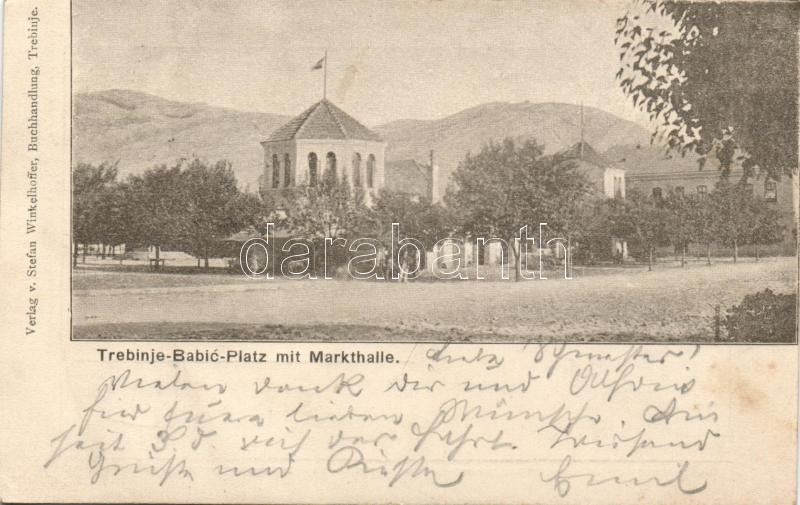 Verlag v. Stefan Winkelhoffer, Buchhandlung, Trebinje.
darabanth
Trebinje-Babić-Platz mit Markthalle.
Liebe Schwester!
Vielen dank Dir und
für Euere lieben Wünsche
seit der Tausend
Grüße und Küsse Emil